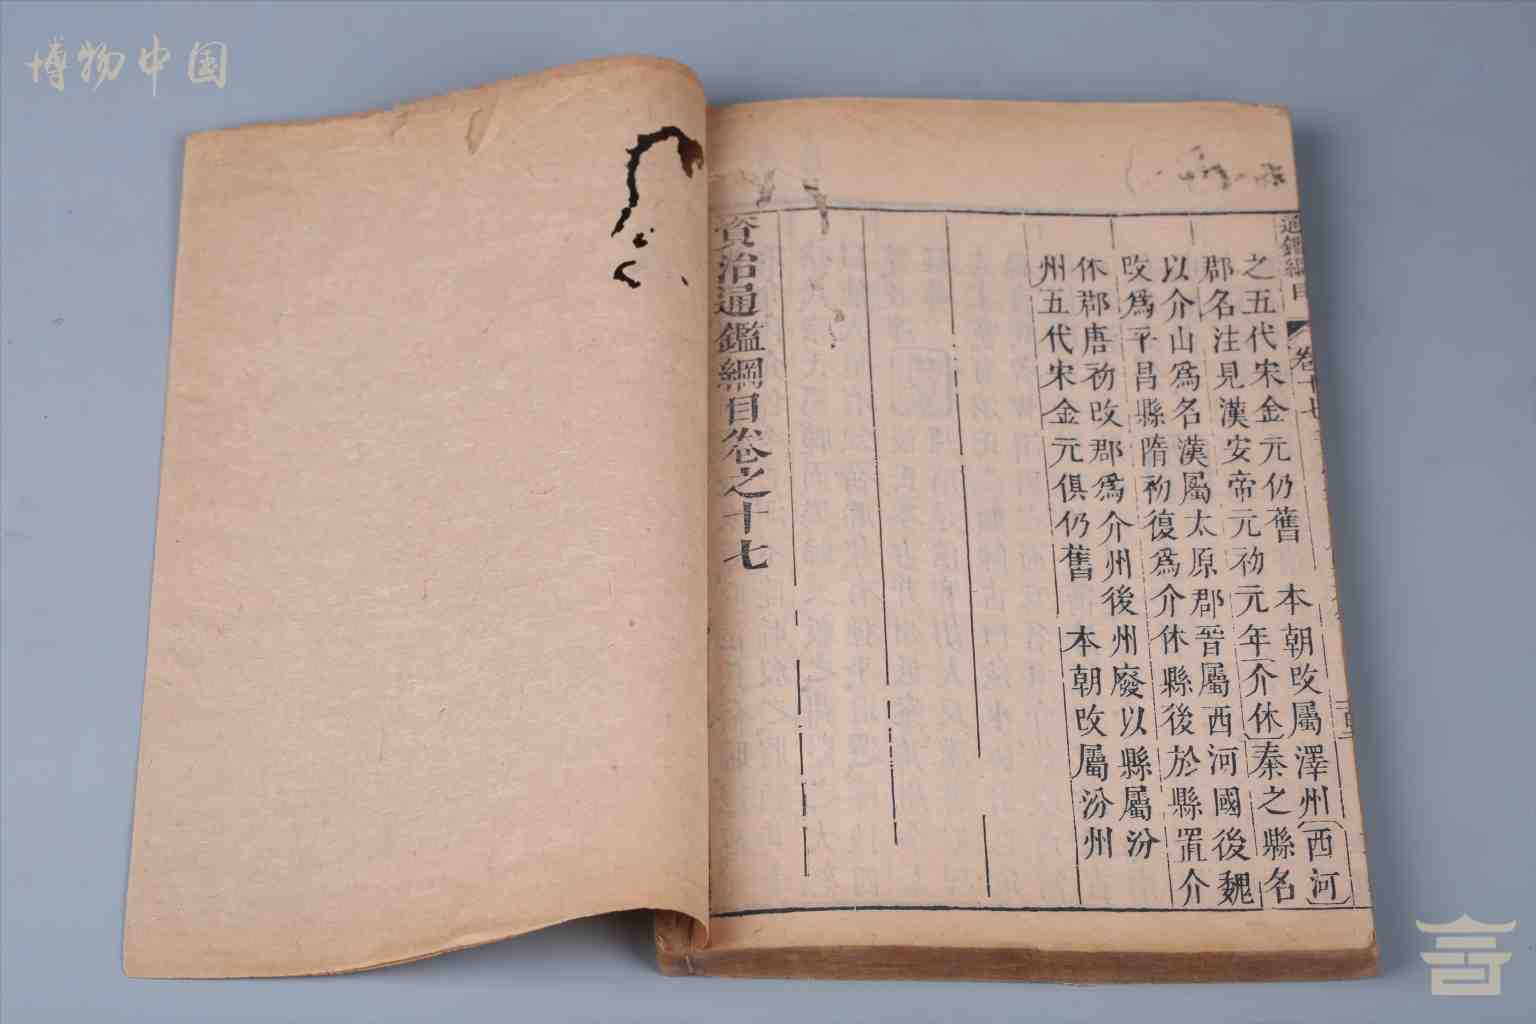 博物中国
通鑑綱目
卷十七
之五代宋金元仍舊　本朝改屬澤州〔西河〕
郡名注見漢安帝元初元年〔介休〕秦之縣名
以介山爲名漢屬太原郡晉屬西河國後魏
改爲平昌縣隋初復爲介休縣後於縣置介
休郡唐初改郡爲介州後州廢以縣屬汾
州五代宋金元俱仍舊　本朝改屬汾州
資治通鑑綱目卷之十七